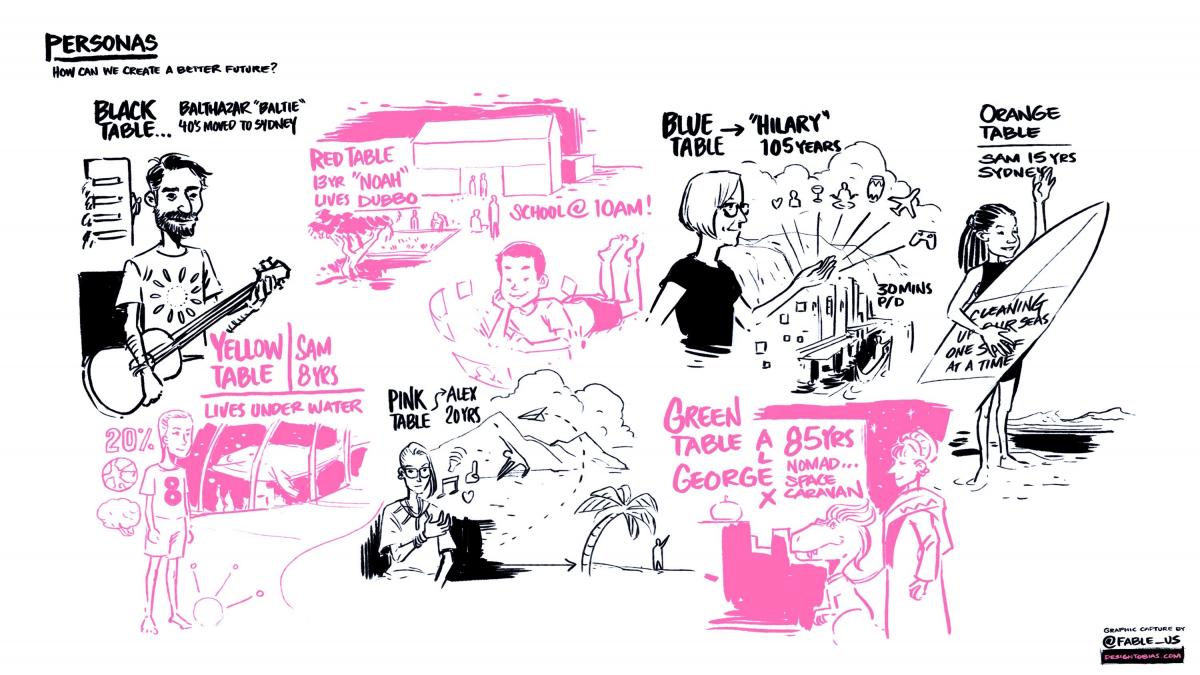 PERSONAS
HOW CAN WE CREATE A BETTER FUTURE?
BLACK TABLE...
BALTHAZAR "BALTIE"
40'S MOVED TO SYDNEY
RED TABLE
13YR "NOAH"
LIVES DUBBO
SCHOOL @ 10AM!
BLUE TABLE → "HILARY"
105 YEARS
30 MINS
P/D
ORANGE
TABLE
SAM 15 YRS
SYDNEY
CLEANING
UP OUR SEAS
ONE
AT A TIME
YELLOW
TABLE
SAM
8YRS
LIVES UNDER WATER
20%
8
PINK
TABLE
ALEX
20YRS
GREEN
TABLE
GEORGE
ALEX
85YRS
NOMAD...
SPACE
CARAVAN
GRAPHIC CAPTURE BY
@FABLE_US
DESIGNTOBIAS.COM